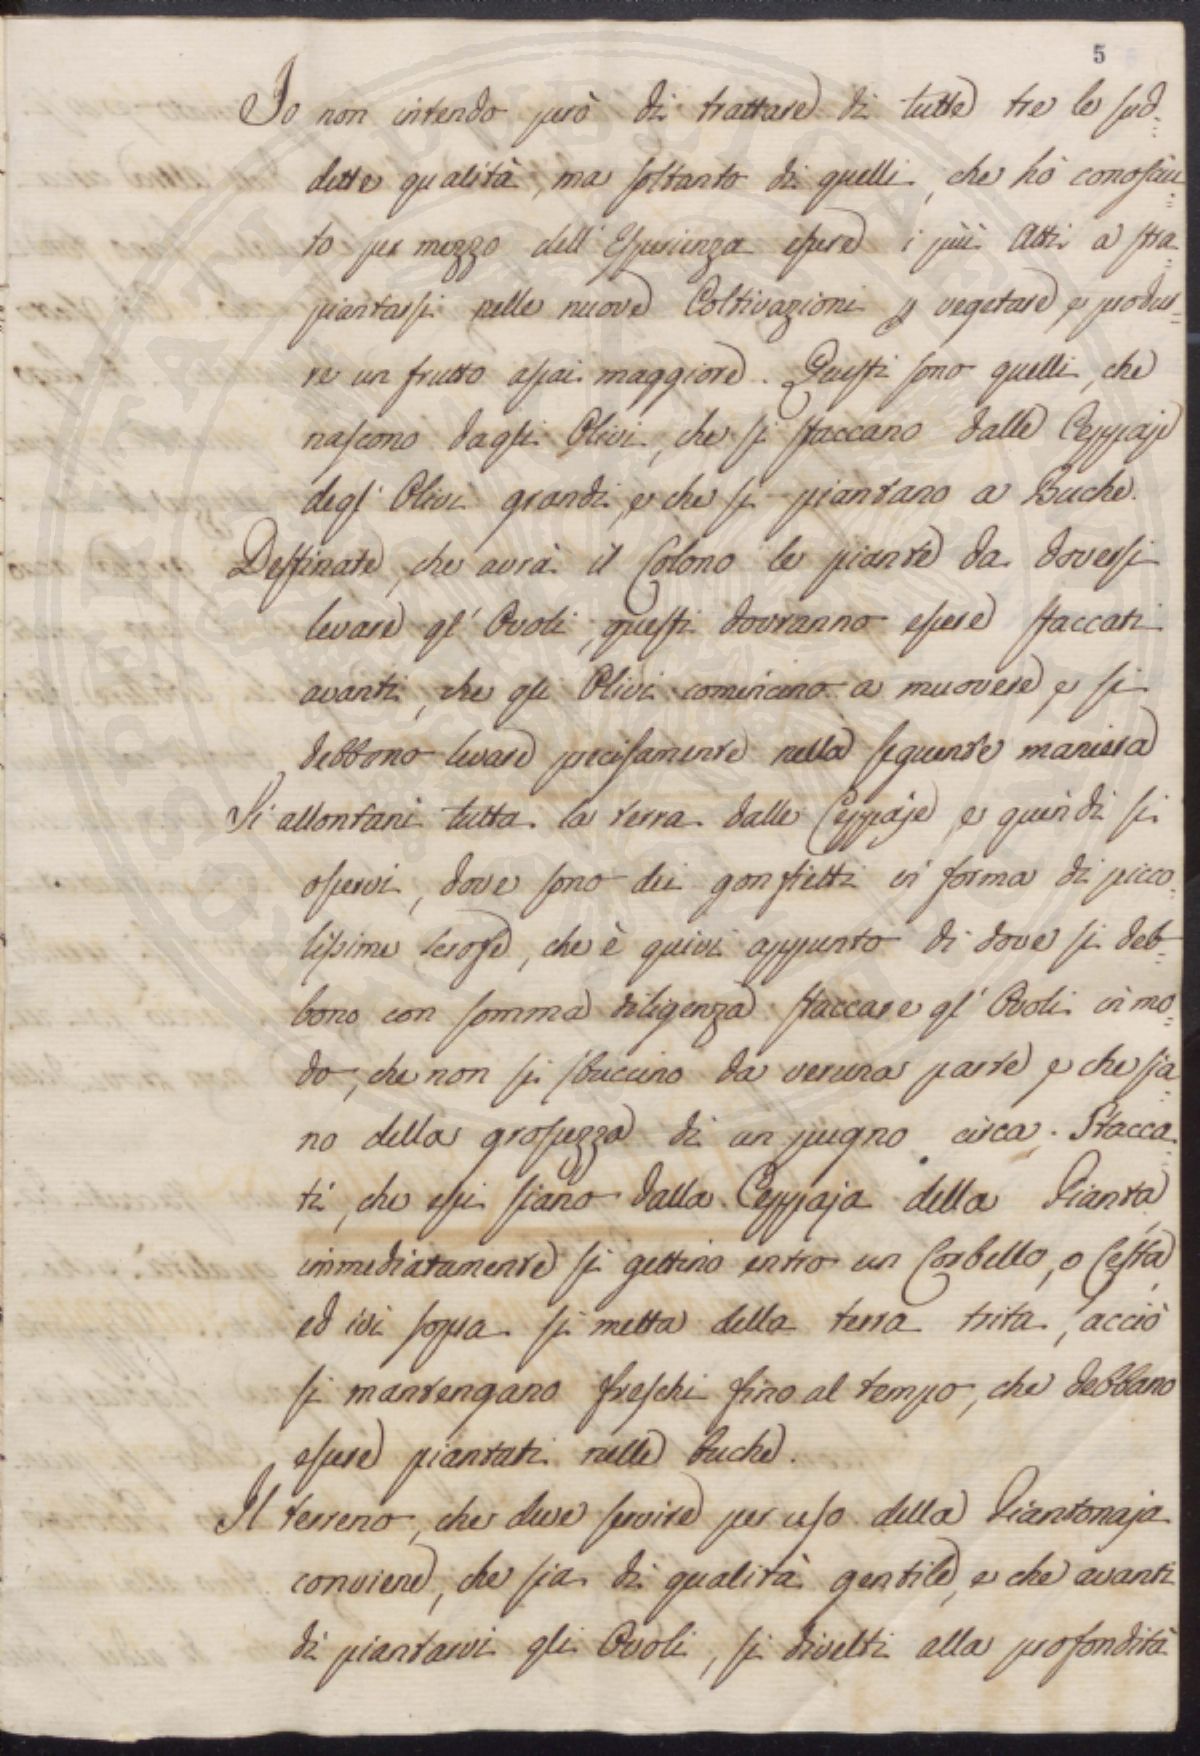 5
Io non intendo però di trattare di tutte tre le sud=
dette qualità, ma soltanto di quelli, che hò conosciu=
to per mezzo dell' Esperienza essere i più Atti a tra=
piantarsi nelle nuove Coltivazioni p vegetare, e produr=
re un frutto assai maggiore. Questi sono quelli, che
nascono dagli Olivi, che si staccano dalle Ceppaje
degl' Olivi grandi, e che si piantano a Buche.
Destinate, che avrà il Colono le piante da doversi
levare gl' Ovoli, questi dovranno essere staccati
avanti, che gli Olivi comincino a muovere, e si
debbono levare precisamente nella seguente maniera
Si allontani tutta la terra dalle Ceppaje e quindi si
osservi, dove sono dei gonfietti in forma di picco=
lissime scrofe, che è quivi appunto di dove si deb=
bono con somma diligenza staccare gl' Ovoli in mo=
do, che non si sbuccino da veruna parte, e che sia=
no della grossezza di un pugno circa. Stacca=
ti, che essi siano dalla Ceppaja della Pianta,
immediatamente si gettino entro un Corbello, o Cesta,
ed ivi sopra si metta della terra trita, acciò
si mantengano freschi fino al tempo, che debbano
essere piantati nelle buche.
Il terreno, che deve servire per uso della Piantonaja
conviene, che sia di qualità gentile, e che avanti
di piantarvi gli Ovoli, si divelti alla profondità